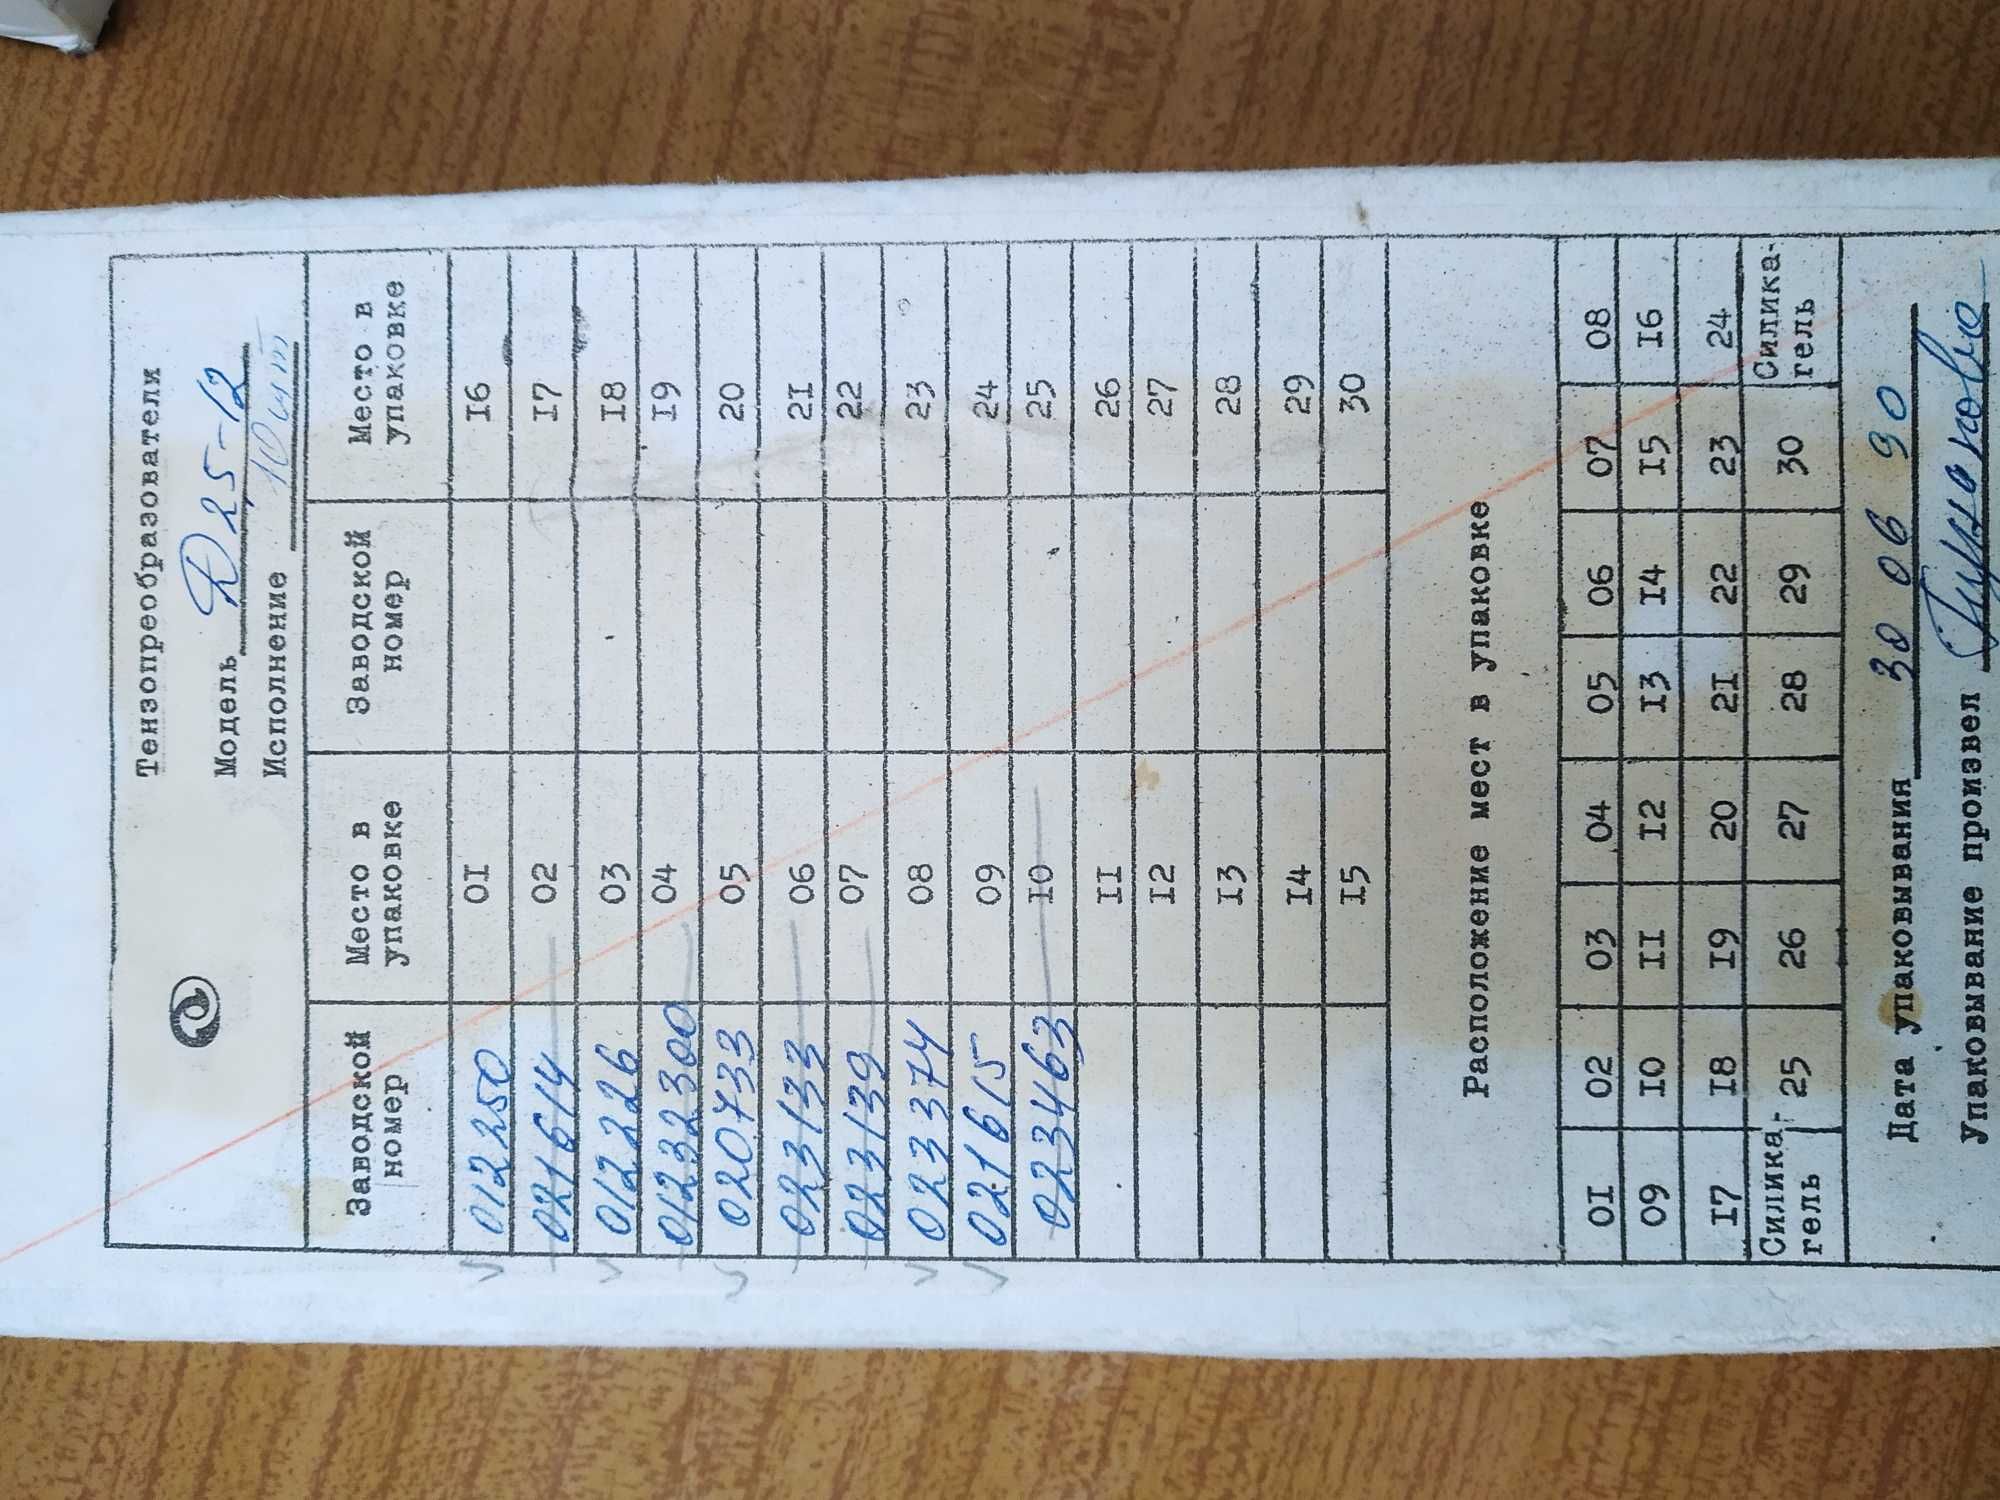 Тензопреобразователи
Модель Д2,5-12
Исполнение 10 шт
Заводской номер Место в упаковке Заводской номер Место в упаковке
012250 01 16
021614 02 17
012226 03 18
01232300 04 19
020733 05 20
023133 06 21
023139 07 22
023374 08 23
021615 09 24
023463 10 25
11 26
12 27
13 28
14 29
15 30
Расположение мест в упаковке
01 02 03 04 05 06 07 08
09 10 11 12 13 14 15 16
17 18 19 20 21 22 23 24
Силика-гель 25 26 27 28 29 30 Силика-гель
Дата упаковывания 30 06 90
Упаковывание произвел